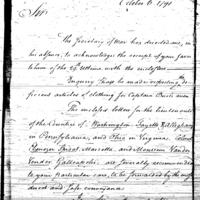 October 6. 1791
Sir,
The Secretary of War has directed me, in
his absence, to acknowledge the receipt of your favor
of the 29th Ultimo with the enclosures.
Enquiry shall be made respecting de-
ficient articles of clothing for Captain
The enclosed letters for the lieutenants
of the Counties of Washington Fayette & Allegheny
in Pennsylvania, and Ohio in Virginia, Colonel
Sproat, Marietta, and Monsieur
Gallipolis, are generally recommended
to your particular care, to be forwarded by the most
direct and safe conveyance.